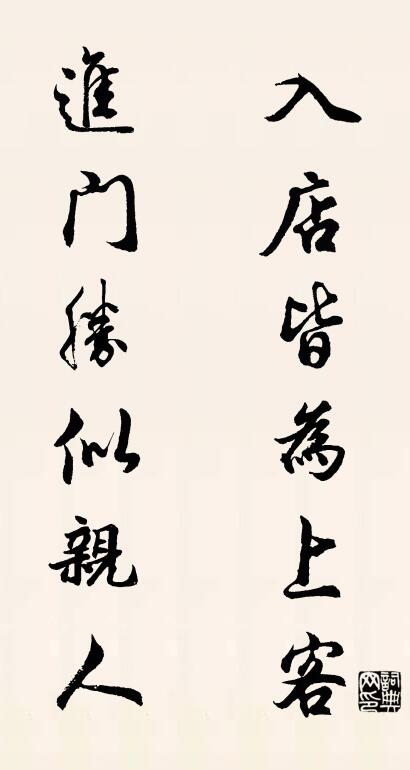 入店皆為上客
進門勝似親人
詞典網印